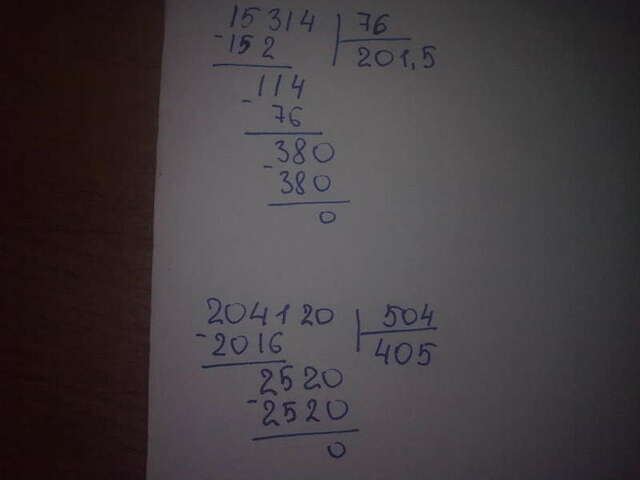 15 314 76
-152 201,5
114
- 76
380
- 380
0
204120 504
- 2016 405
2520
- 2520
0